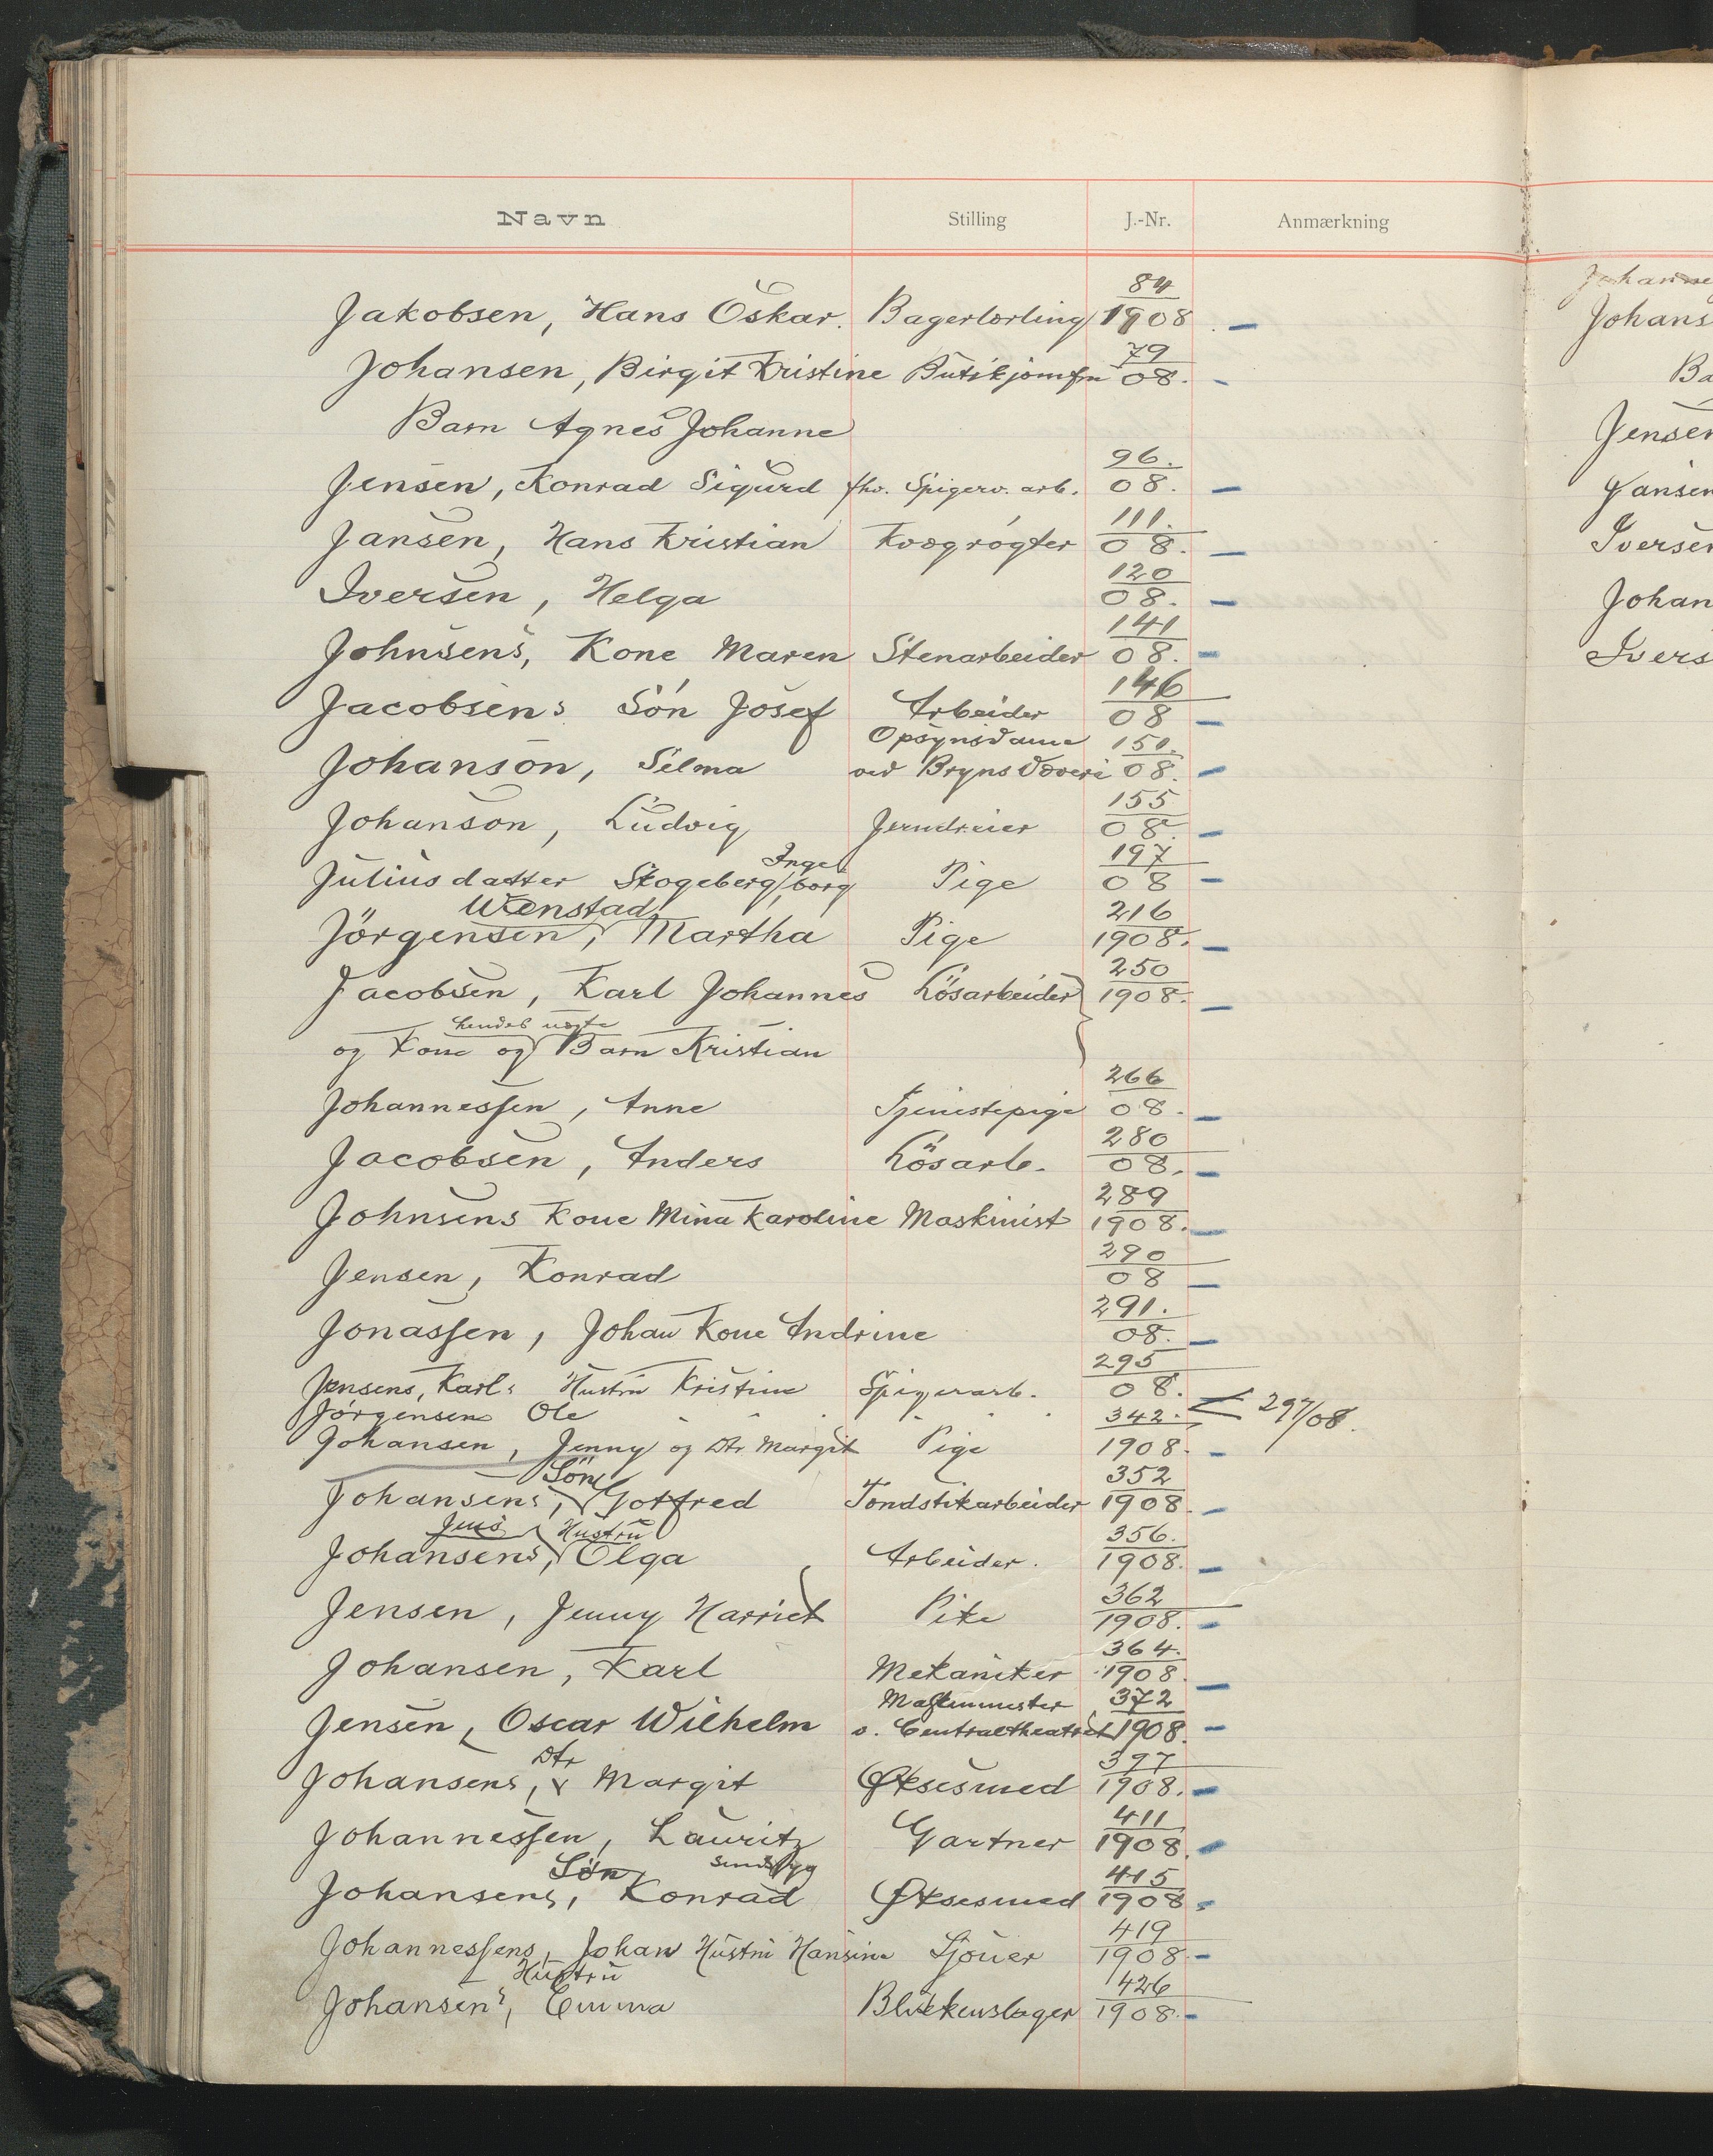 Navn Stilling J.-Nr. Anmærkning
Jakobsen, Hans Oskar. Bagerlærling 84/1908
Johansen, Birgit Kristine Butikjomfru 79/08.
Barn Agnes Johanne
Jensen, Konrad Sigurd fhv. Spigerv. arb. 96./08.
Jansen, Hans Kristian Kvægrøgter 111./08.
Iversen, Helga 120/08.
Johnsens, Kone Maren Stenarbeider 141/08.
Jacobsens Søn Josef Arbeider 146/08
Johanson, Selma Opsynsdame ved Bryns Væveri 151./08.
Johanson, Ludvig Jerndreier 155/08.
Juliusdatter Skogeberg, Ingeborg Pige 197/08
Jörgensen, Wenstad Martha Pige 216/1908.
Jacobsen, Karl Johannes Lösarbeider 250/1908.
og Kone og hendes uægte Barn Kristian
Johannessen, Anne Tjenestepige 266/08.
Jacobsen, Anders Lösarb. 280/08.
Johnsens Kone Mina Karoline Maskinist 289/1908.
Jensen, Konrad 290/08
Jonassen, Johan Kone Andrine 291./08.
Jensens, Karls Hustru Kristine Spigerarb. 295/08.
Jörgensen Ole " " " " = 297/08.
Johansen, Jenny og Dtr Margit Pige 342./1908.
Johansens, Sön Gotfred Tondstikarbeider 352/1908.
Johansens, Jens Hustru Olga Arbeider. 356./1908.
Jensen, Jenny Harriet Pike 362/1908.
Johansen, Karl Mekaniker 364./1908.
Jensen, Oscar Wilhelm Maskinmester v. Centraltheatret 372/1908.
Johansens, Dtr Margit Øksesmed 397/1908.
Johannessen, Lauritz Gartner 411/1908.
Johansens, Sön Konrad sindssyg Øksesmed 415/1908.
Johannessens, Johan Hustru Hansine Sjouer 419/1908
Johansens, Hustru Emma Blikkenslager 426/1908.
Johanne
Johans
Ba
Jensen
Jansen
Iversen
Johan
Ivers